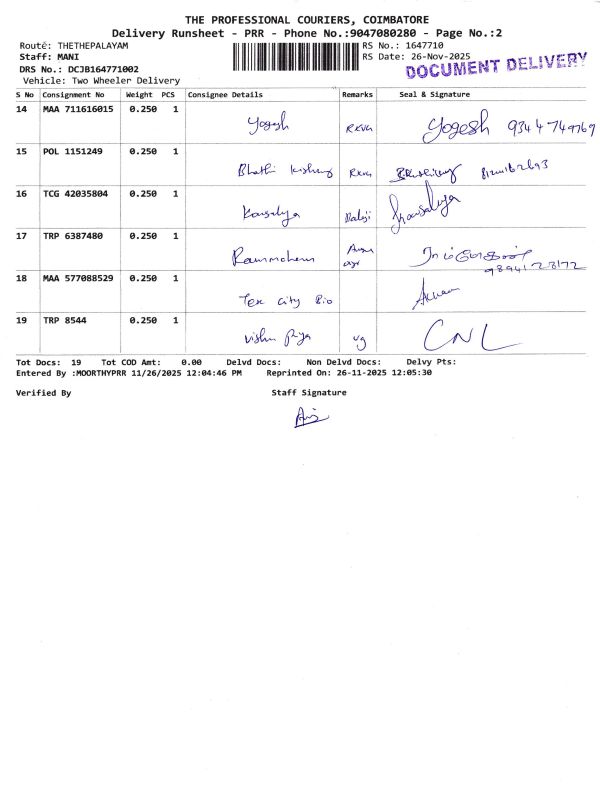 THE PROFESSIONAL COURIERS, COIMBATORE
Delivery Runsheet - PRR - Phone No.:9047080280 - Page No.:2
Route: THETHEPALAYAM RS No.: 1647710
Staff: MANI RS Date: 26-Nov-2025
DOCUMENT DELIVERY
DRS No.: DCJB164771002
Vehicle: Two Wheeler Delivery
S No Consignment No Weight PCS Consignee Details Remarks Seal & Signature
14 MAA 711616015 0.250 1 Yogesh RKVM Yogesh 9344749769
15 POL 1151249 0.250 1 RKVM
16 TCG 42035804 0.250 1 Kousalya Balaji Kousalya
17 TRP 6387480 0.250 1 Rammohan
9894128172
18 MAA 577088529 0.250 1 Tex City Bio
19 TRP 8544 0.250 1 Vishnu Priya vg CNL
Tot Docs: 19 Tot COD Amt: 0.00 Delvd Docs: Non Delvd Docs: Delvy Pts:
Entered By :MOORTHYPRR 11/26/2025 12:04:46 PM Reprinted On: 26-11-2025 12:05:30
Verified By Staff Signature